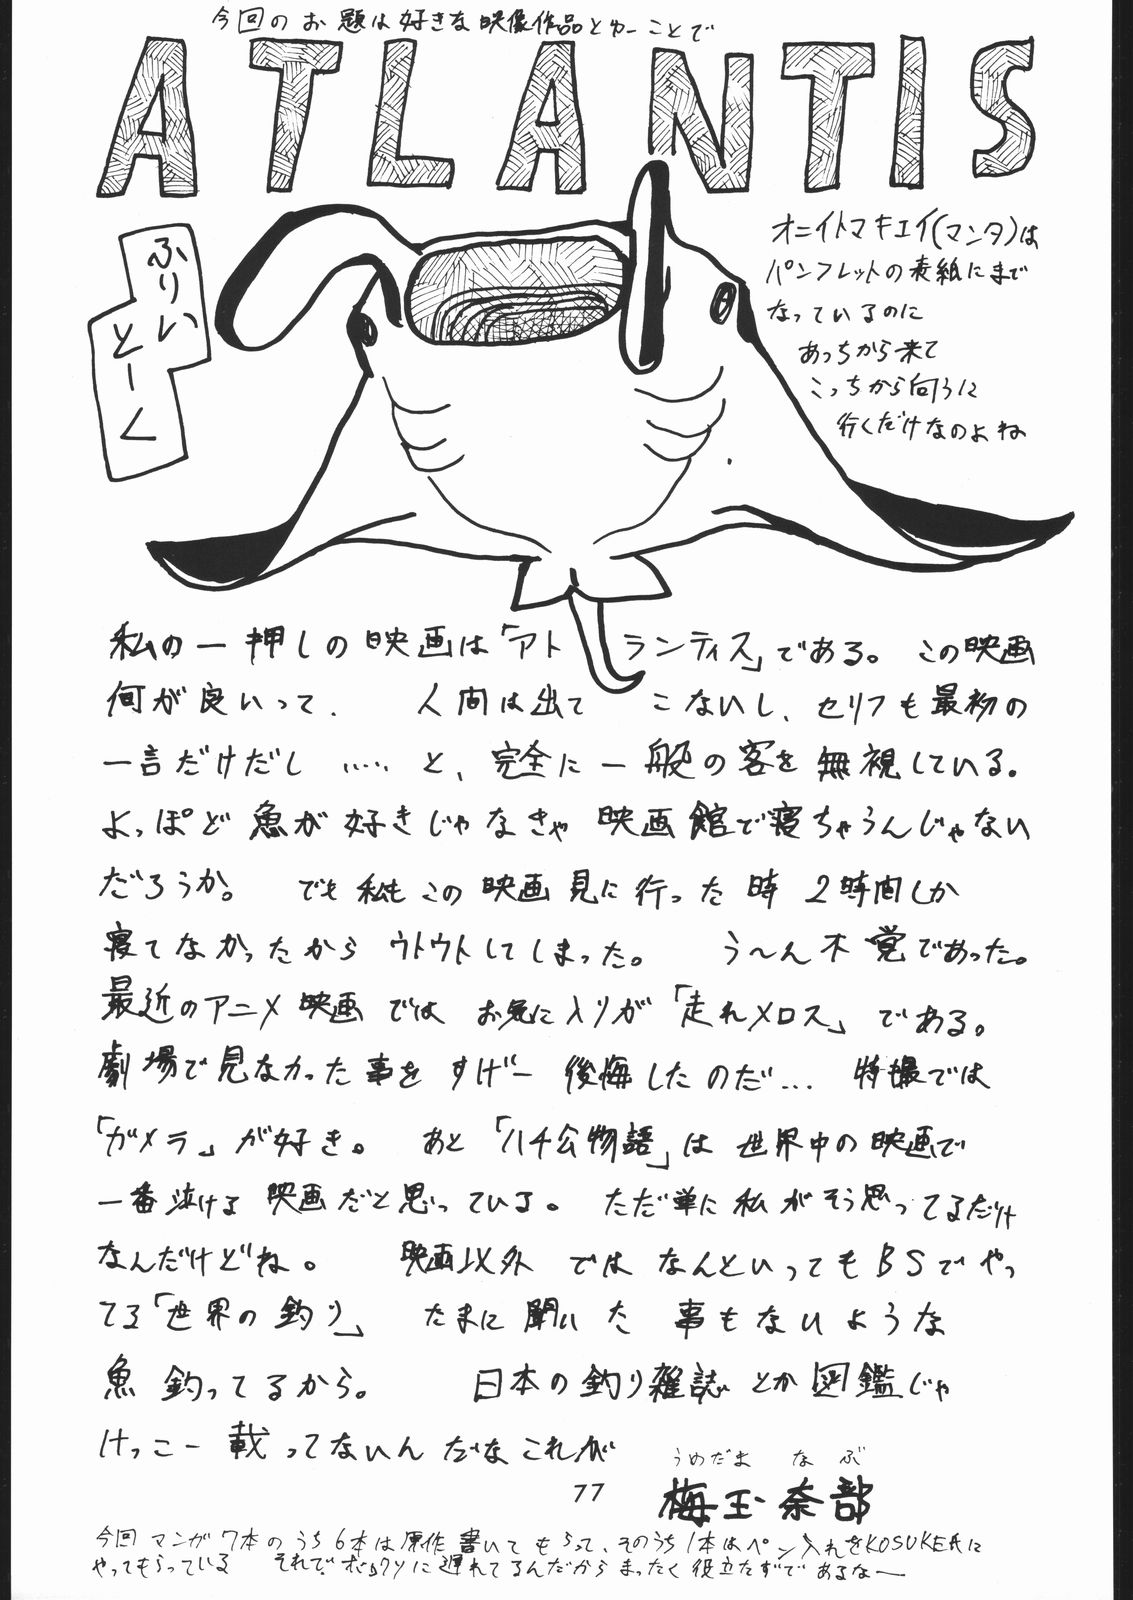 今回のお題は好きな映像作品とゆーことで
ATLANTIS
ふりい
とーく
オニイトマキエイ(マンタ)は
パンフレットの表紙にまで
なっているのに
あっちから来て
こっちから向うに
行くだけなのよね
私の一押しの映画は「アトランティス」である。この映画
何が良いって、人間は出てこないし、セリフも最初の
一言だけだし……と、完全に一般の客を無視している。
よっぽど魚が好きじゃなきゃ映画館で寝ちゃうんじゃない
だろうか。でも私もこの映画見に行った時2時間しか
寝てなかったからウトウトしてしまった。う〜ん不覚であった。
最近のアニメ映画ではお気に入りが「走れメロス」である。
劇場で見なかった事をすげー後悔したのだ… 特撮では
「ガメラ」が好き。あと「ハチ公物語」は世界中の映画で
一番泣ける映画だと思っている。ただ単に私がそう思ってるだけ
なんだけどね。映画以外ではなんといってもBSでやっ
てる「世界の釣り」たまに聞いた事もないような
魚釣ってるから。日本の釣り雑誌とか図鑑じゃ
けっこー載ってないんだなこれが
うめだま なぶ
梅玉奈部
77
今回マンガ7本のうち6本は原作書いてもらって、そのうち1本はペン入れをKOSUKE氏に
やってもらっている それで、に遅れてるんだからまったく役立たずであるなー